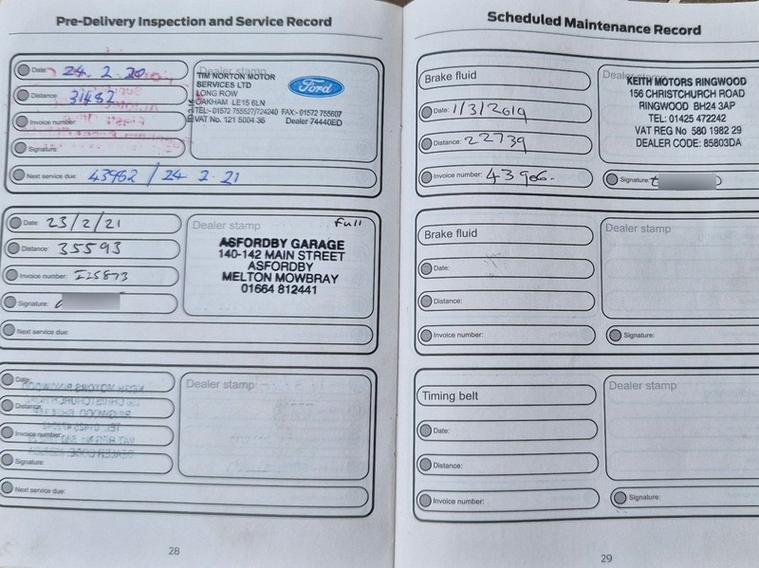 Pre-Delivery Inspection and Service Record
Date: 24. 2. 20
Distance: 31482
Invoice number:
Signature:
Next service due: 43982 / 24 2. 21
Dealer stamp
TIM NORTON MOTOR
SERVICES LTD
LONG ROW
OAKHAM LE15 6LN
TEL:-01572 755527/724240 FAX:-01572 755607
VAT No. 121 5004 36 Dealer 74440ED
Ford
Date: 23/2/21
Distance: 35593
Invoice number: I25873
Signature:
Next service due:
Dealer stamp
Full
ASFORDBY GARAGE
140-142 MAIN STREET
ASFORDBY
MELTON MOWBRAY
01664 812441
Date:
Distance:
Invoice number:
Signature:
Next service due:
Dealer stamp
28
Scheduled Maintenance Record
Brake fluid
Date: 1/3/2019
Distance: 22739
Invoice number: 43906.
Dealer stamp
KEITH MOTORS RINGWOOD
156 CHRISTCHURCH ROAD
RINGWOOD BH24 3AP
TEL: 01425 472242
VAT REG No 580 1982 29
DEALER CODE: 85803DA
Signature:
Brake fluid
Date:
Distance:
Invoice number:
Dealer stamp
Signature:
Timing belt
Date:
Distance:
Invoice number:
Dealer stamp
Signature:
29